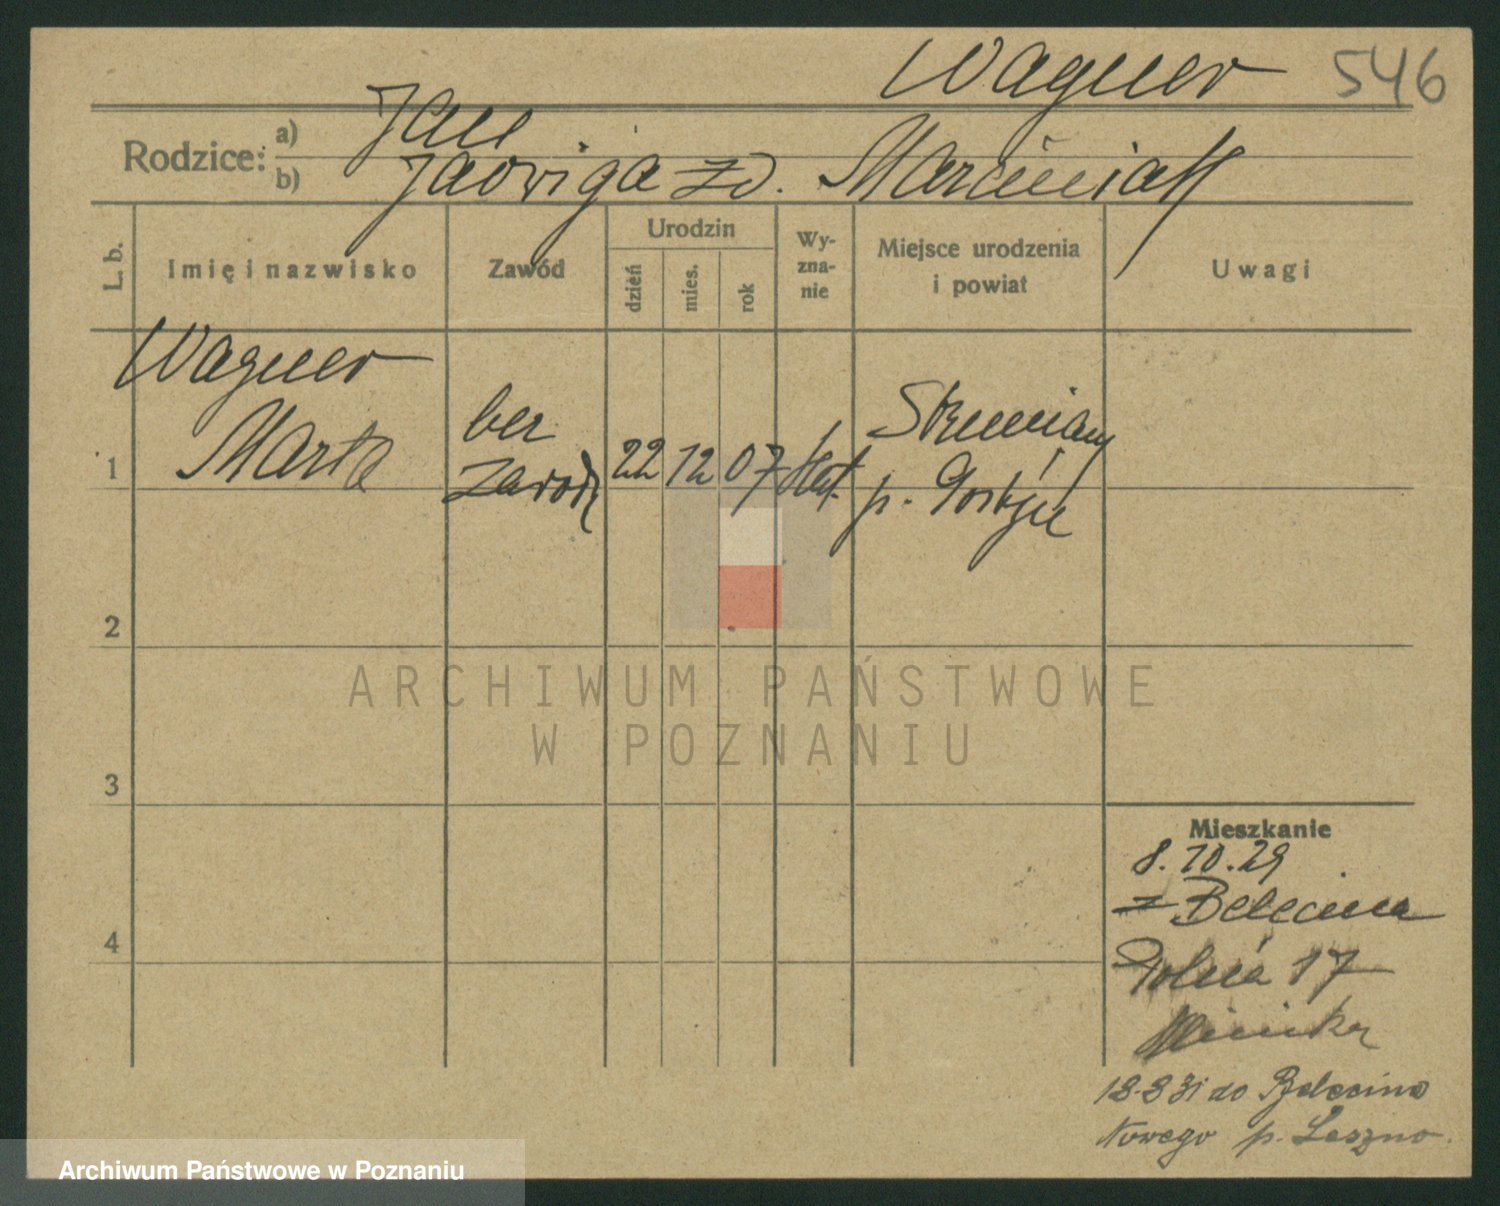 Wagner 546
Rodzice:
a) Jan
b) Jadwiga zd. Marciniak
L. b.
Imię i nazwisko
Zawód
Urodzin
dzień
mies.
rok
Wy-
zna-
nie
Miejsce urodzenia
i powiat
Uwagi
Wagner
1 Marta
bez
zawodu
22 12 07 kat.
Strumiany
p. Gostyń
2
3
4
ARCHIWUM PAŃSTWOWE
W POZNANIU
Mieszkanie
8.10.29
z Belecina
Polna 17
18.8 31 do Belecina
Nowego p. Leszno.
Archiwum Państwowe w Poznaniu